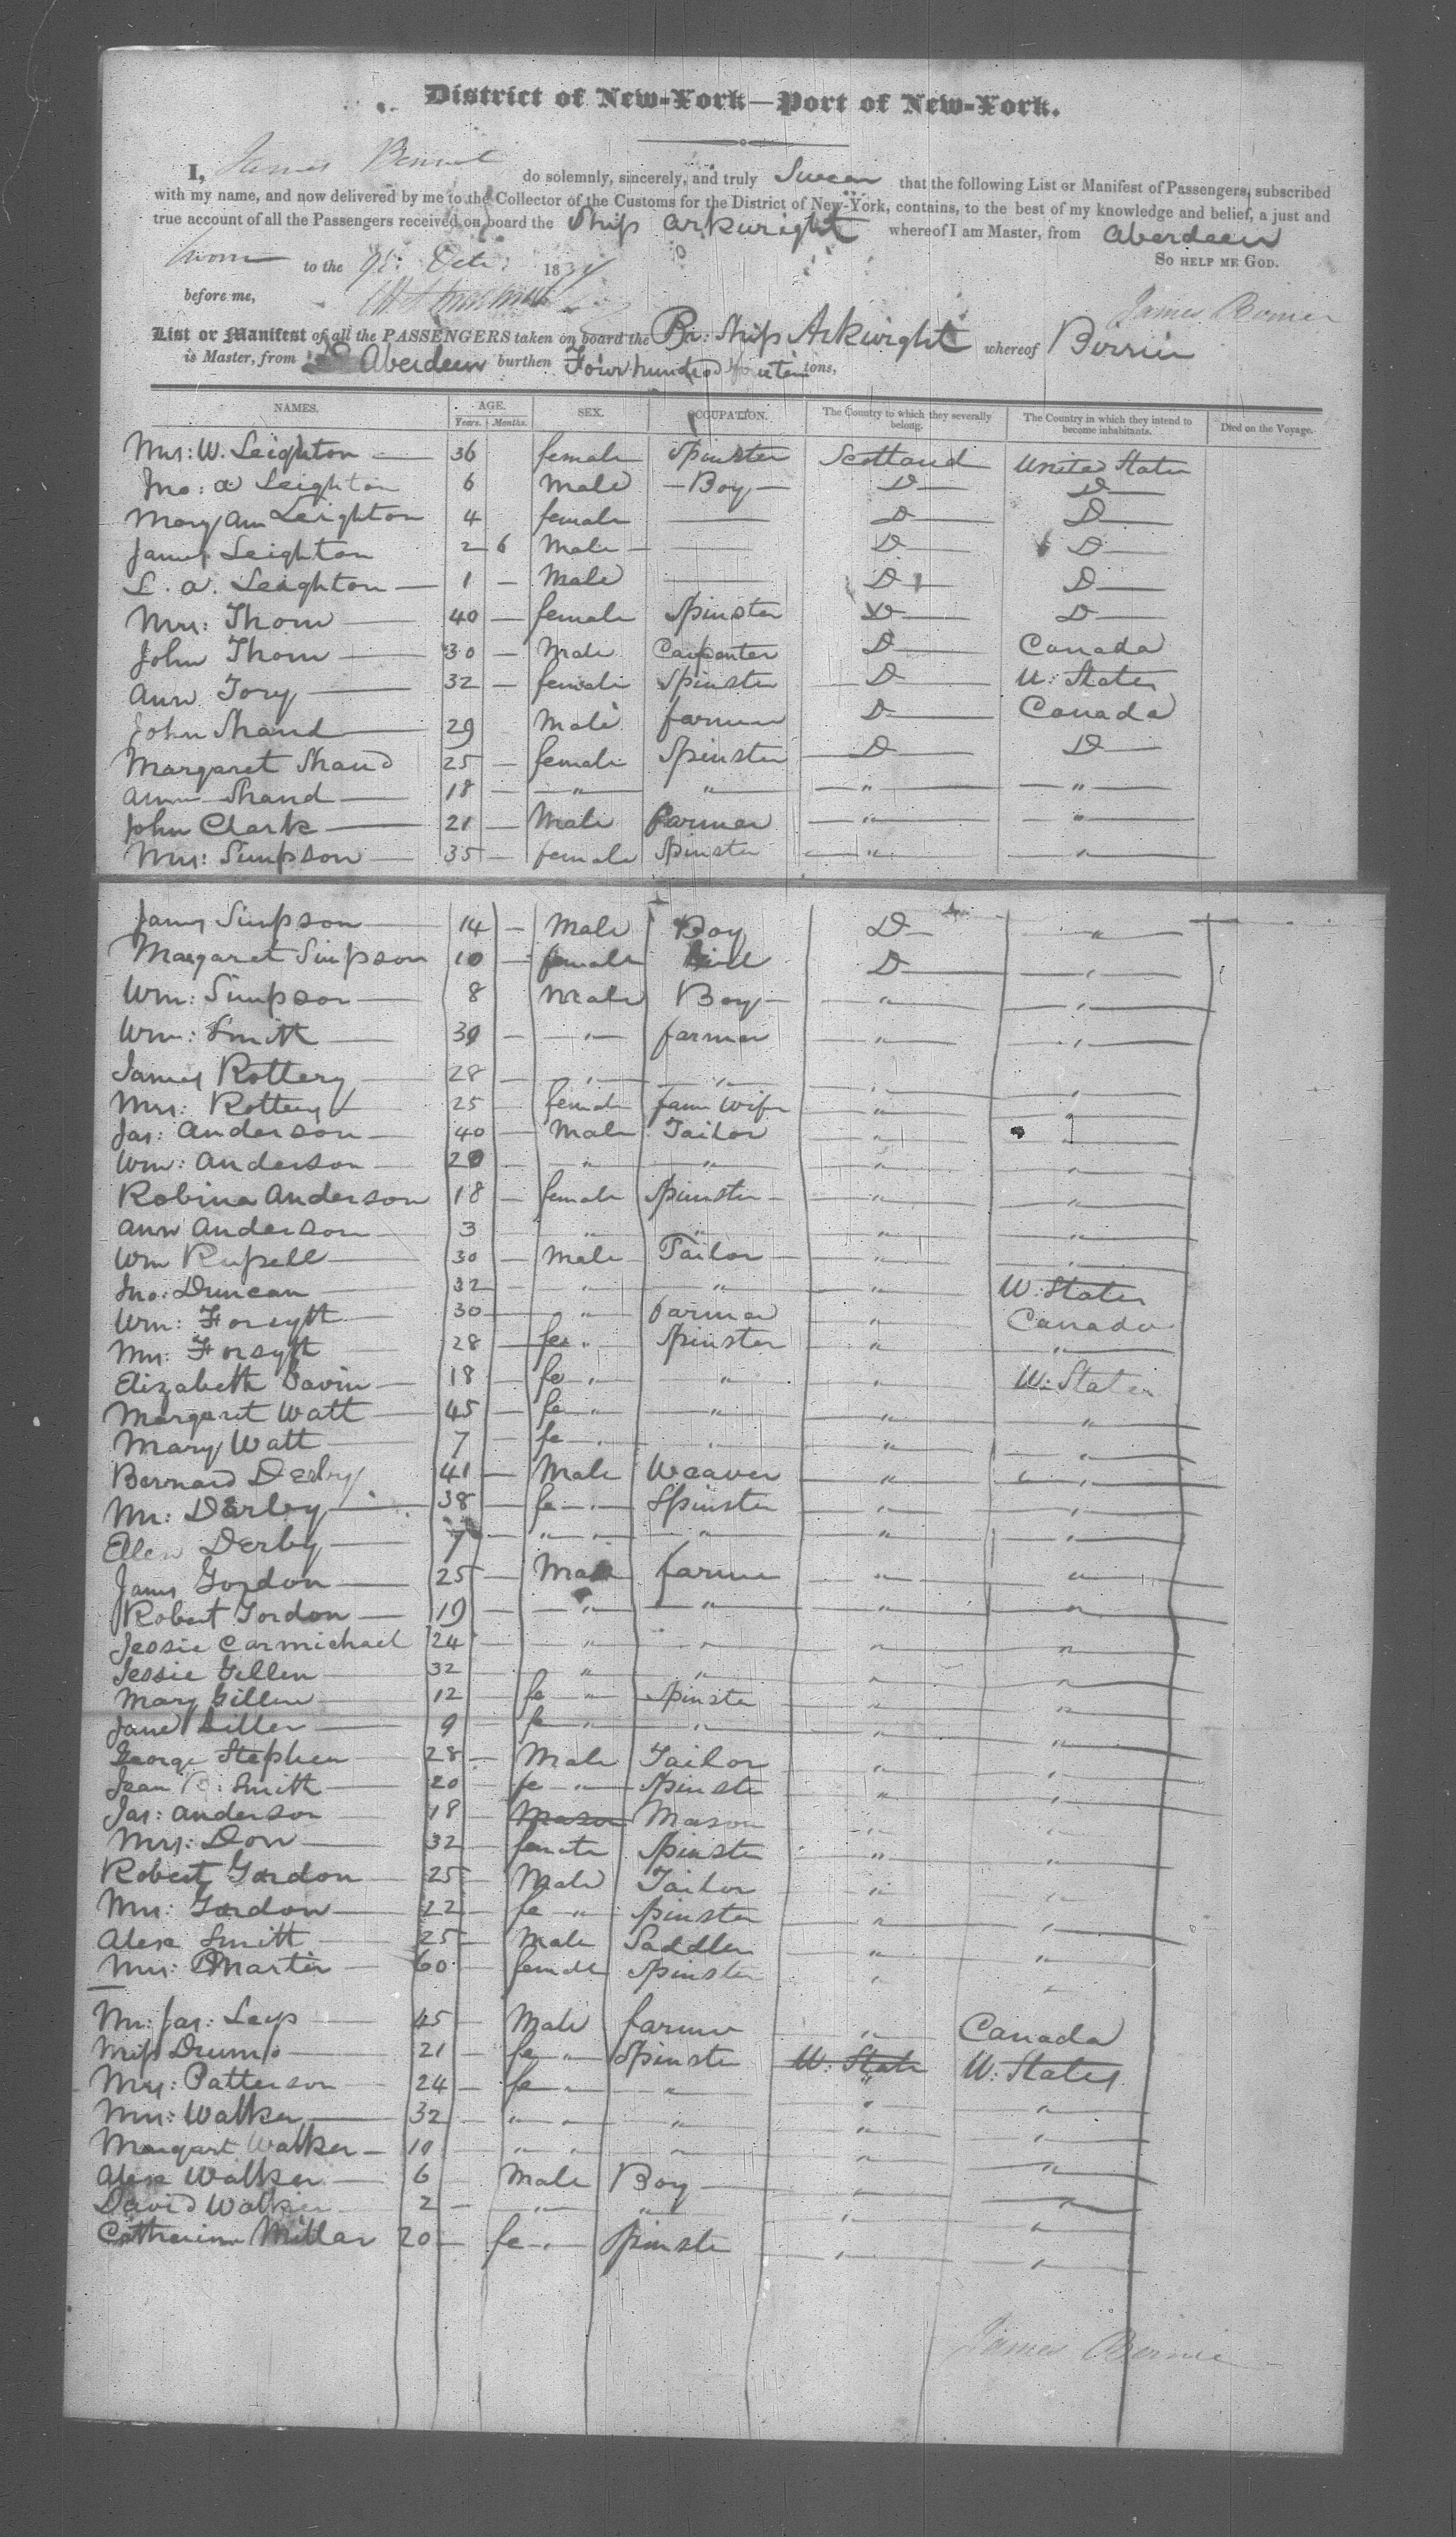 District of New-York—Port of New-York.
I, James do solemnly, sincerely, and truly Swear that the following List or Manifest of Passengers, subscribed
with my name, and now delivered by me to the Collector of the Customs for the District of New-York, contains, to the best of my knowledge and belief, a just and
true account of all the Passengers received on board the Ship Arkwright whereof I am Master, from Aberdeen
So help me God.
Sworn to the Octr: 183
before me,
James
List or Manifest of all the PASSENGERS taken on board the Br: Ship Arkwright whereof
is Master, from Aberdeen burthen Four hundred tons,
NAMES. AGE. SEX. OCCUPATION. The Country to which they severally belong. The Country in which they intend to become inhabitants. Died on the Voyage.
Years. Months.
Mrs: W. Leighton 36 female Spinster Scotland United States
Jno: A Leighton 6 Male — Boy — D— D—
Mary Ann Leighton 4 female — D— D—
James Leighton 2 6 Male — D— D—
L. A. Leighton 1 — Male — D— D—
Mrs: Thom 40 — female Spinster D— D—
John Thom 30 — Male Carpenter D— Canada
Ann Tory 32 — female Spinster D— U: States
John Shand 29 Male farmer D— Canada
Margaret Shand 25 — female Spinster D— D—
Ann Shand 18 — " " " "
John Clark 21 — Male Farmer " "
Mrs: Simpson 35 — female Spinster " "
James Simpson 14 — Male Boy D— "
Margaret Simpson 10 — female Girl D— "
Wm: Simpson 8 Male Boy — " "
Wm: Smith 30 — " farmer " "
James Rottery 28 — " " " "
Mrs: Rottery 25 female farm Wife " "
Jas: Anderson 40 — Male Tailor " "
Wm: Anderson 20 — " " " "
Robina Anderson 18 — female Spinster — " "
Ann Anderson 3 " " " "
Wm Russell 30 — Male Tailor — " "
Jno: Duncan 32 — " " " U: States
Wm: Forsyth 30 " farmer " Canada
Mrs: Forsyth 28 fe " Spinster " "
Elizabeth 18 — fe " " " U: States
Margaret Watt 45 — fe " " " "
Mary Watt 7 — fe " " " "
Bernard Derby 41 — Male Weaver " "
Mrs: Derby 38 — fe " Spinster " "
Ellen Derby 7 — " " " " "
James Gordon 25 — Male farmer " "
Robert Gordon 19 — " " " "
Jessie Carmichael 24 — " " " "
Jessie Gillen 32 — " " " "
Mary Gillen 12 — fe " Spinster " "
Jane Gillen 9 — fe " " " "
George Stephen 28 — Male Tailor " "
Jean Smith 20 — fe " Spinster " "
Jas: Anderson 18 — Mason Mason " "
Mrs: Don 32 — female Spinster " "
Robert Gordon 25 — Male Tailor " "
Mrs: Gordon 22 — fe " Spinster " "
Alexr Smith 25 — Male Saddler " "
Mrs: Martin 60 — female Spinster " "
Mr: Jas: 45 — Male farmer " Canada
Miss 21 — fe " Spinster U: State U: States
Mrs: Patterson 24 — fe " " " "
Mrs: Walker 32 — " " " " "
Margart Walker — 10 — " " " " "
Alexr Walker 6 — Male Boy " "
David Walker 2 — " " " "
Catherine Millar 20 — fe " Spinster " "
James